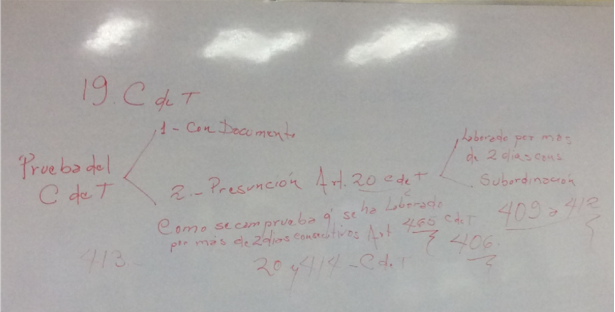 19. C de T
1 - Con Documento
Prueba del
C de T
2. - Presunción Art. 20 C de T
Laborado por más
de 2 días cons
Subordinación
Como se comprueba q' se ha laborado
por más de 2 días consecutivos Art 405 C d T
409 a 412
406
413 -
20 y 414 - C de T